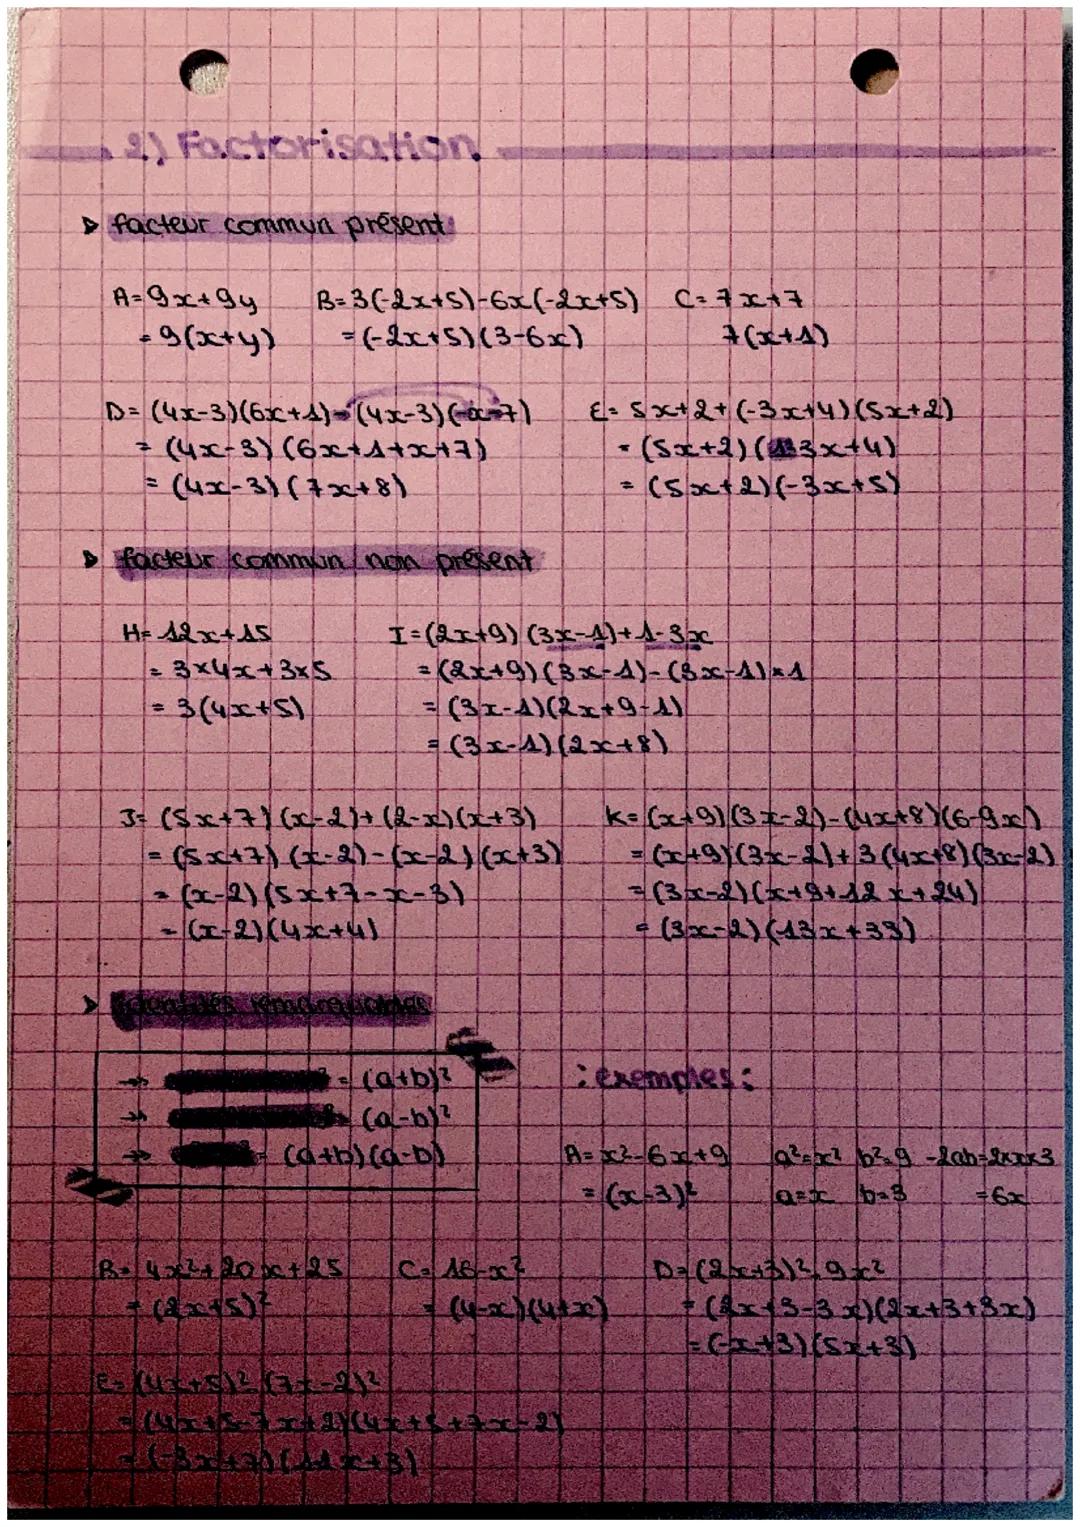 2) Factorisation
▷ facteur commun présent:
A = 9x+9y B = 3(-2x+5)-6x(-2x+5) C = 7x+7
= 9(x+y) = (-2x+5)(3-6x) 7(x+1)
D = (4x-3)(6x+1)-(4x-3)(-x-7) E = 5x+2+(-3x+4)(5x+2)
= (4x-3)(6x+1+x+7) = (5x+2)(3x+4)
= (4x-3)(7x+8) = (5x+2)(-3x+5)
▷ facteur commun non présent
H = 12x+15 I = (2x+9)(3x-1)+1-3x
= 3×4x+3×5 = (2x+9)(3x-1)-(3x-1)×1
= 3(4x+5) = (3x-1)(2x+9-1)
= (3x-1)(2x+8)
J = (5x+7)(x-2)+(2-x)(x+3) K = (x+9)(3x-2)-(4x+8)(6-9x)
= (5x+7)(x-2)-(x-2)(x+3) = (x+9)(3x-2)+3(4x+8)(3x-2)
= (x-2)(5x+7-x-3) = (3x-2)(x+9+12x+24)
= (x-2)(4x+4) = (3x-2)(13x+33)
▷ Identités remarquables
→ = (a+b)² : exemples:
→ (a-b)²
→ = (a+b)(a-b) A = x²-6x+9 a²=x² b²=9 -2ab=2×x×3
= (x-3)² a=x b=3 =6x
B = 4x²+20x+25 C = 16-x² D = (2x+3)²-9x²
= (2x+5)² = (4-x)(4+x) = (2x+3-3x)(2x+3+3x)
= (-x+3)(5x+3)
E = (4x+5)²-(7x-2)²
= (4x+5-7x+2)(4x+5+7x-2)
= (-3x+7)(11x+3)